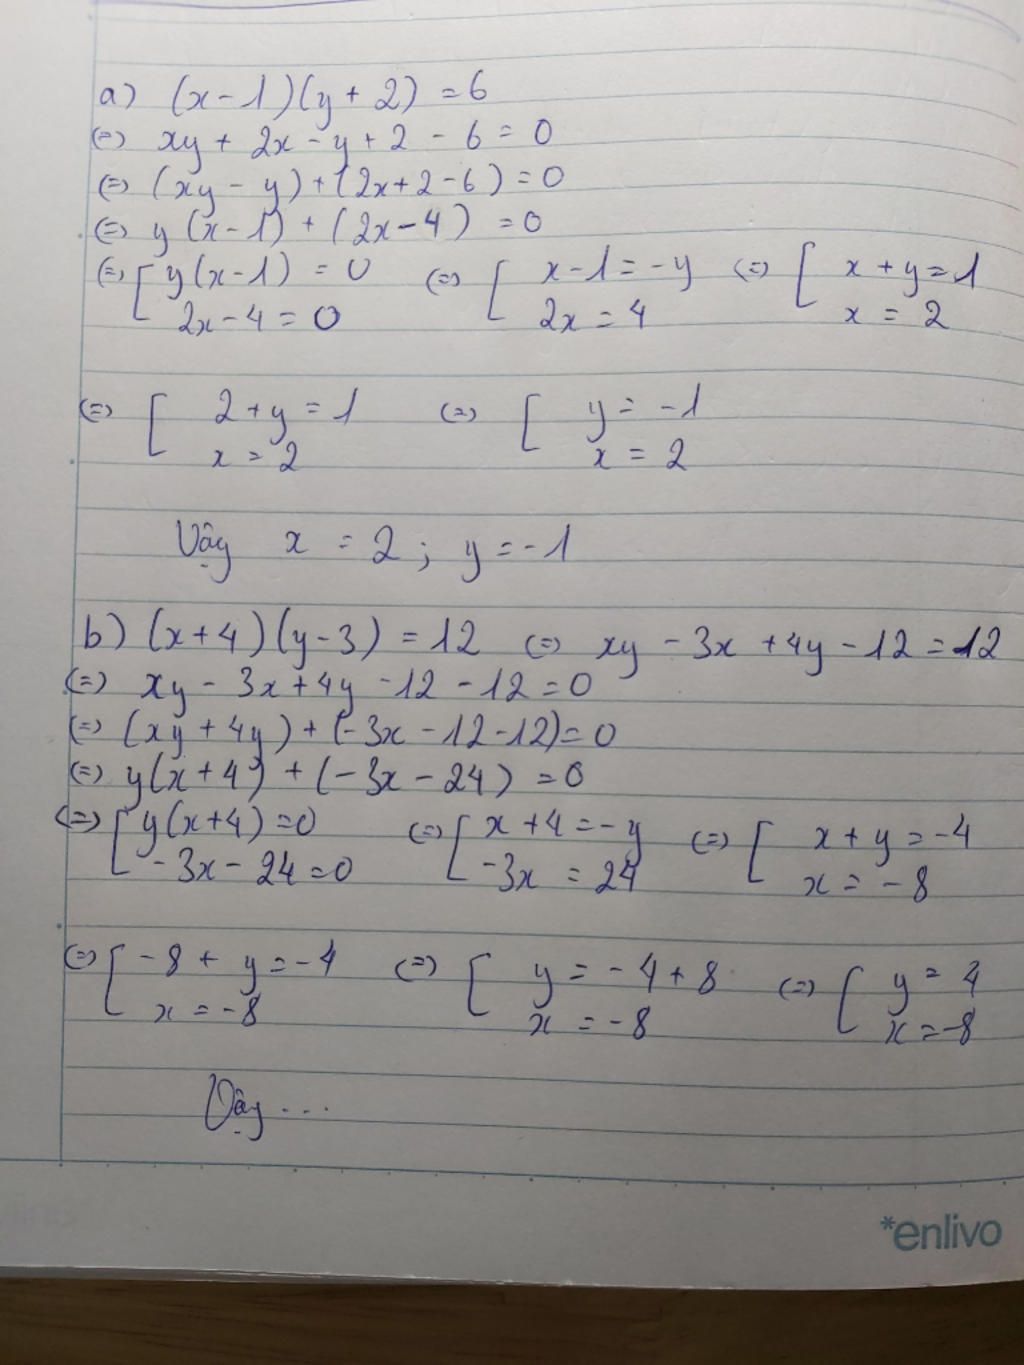 a) (x-1)(y+2) = 6
(=) xy + 2x - y + 2 - 6 = 0
(=) (xy - y) + (2x+2-6) = 0
(=) y(x-1) + (2x-4) = 0
(=) [ y(x-1) = 0 (=) [ x-1 = -y (=) [ x+y = 1
2x-4 = 0 2x = 4 x = 2
(=) [ 2+y = 1 (=) [ y = -1
x = 2 x = 2
Vậy x = 2; y = -1
b) (x+4)(y-3) = 12 (=) xy - 3x + 4y - 12 = 12
(=) xy - 3x + 4y - 12 - 12 = 0
(=) (xy + 4y) + (-3x - 12 - 12) = 0
(=) y(x+4) + (-3x - 24) = 0
(=) [ y(x+4) = 0 (=) [ x+4 = -y (=) [ x+y = -4
-3x - 24 = 0 -3x = 24 x = -8
(=) [ -8 + y = -4 (=) [ y = -4+8 (=) [ y = 4
x = -8 x = -8 x = -8
Vậy ...
*enlivo